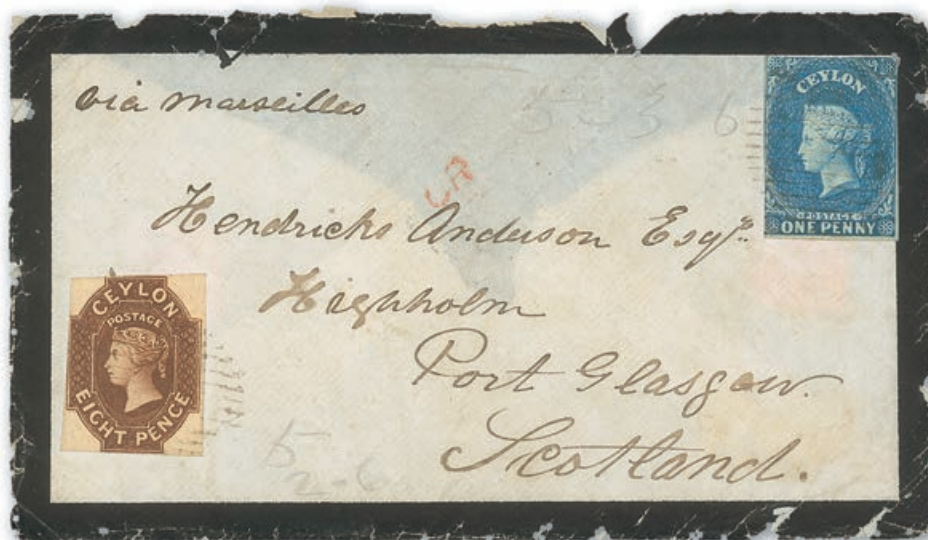 via Marseilles
5-3 6
CEYLON
POSTAGE
ONE PENNY
Hendricks Anderson Esqre
Highholm
Port Glasgow
Scotland.
CEYLON
POSTAGE
EIGHT PENCE
5
2-6